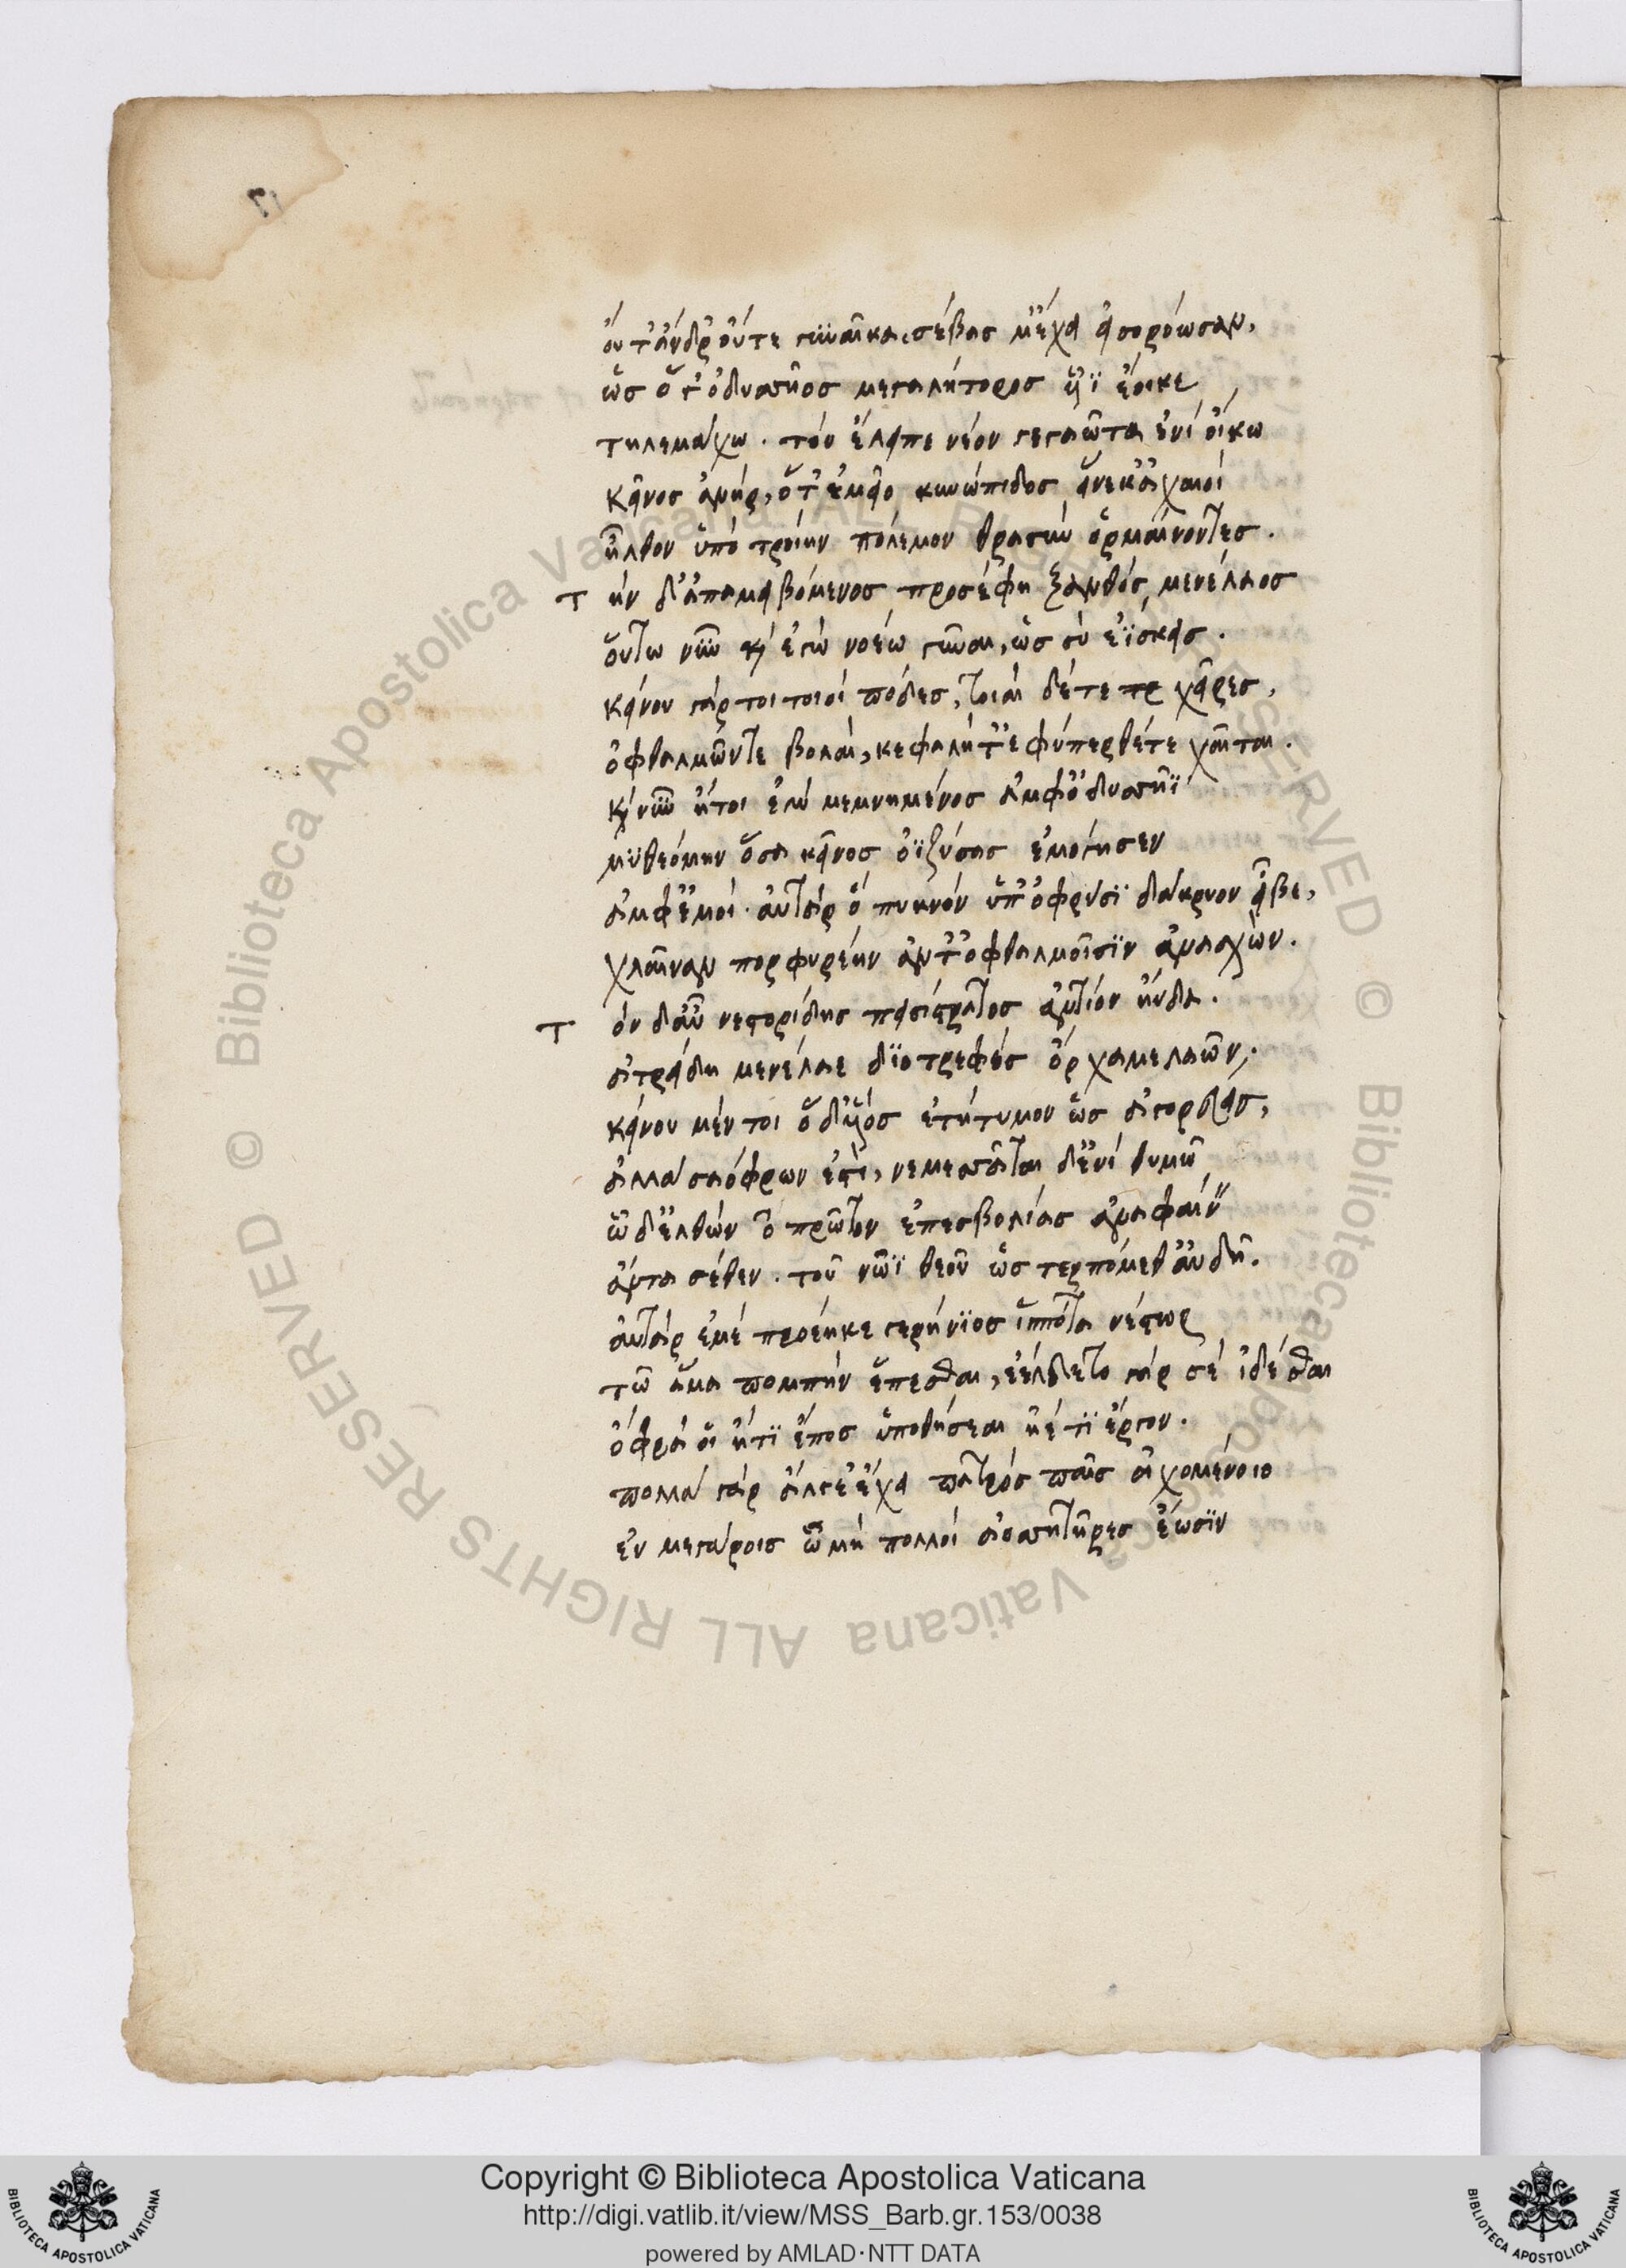 οὔτ' ἄνδρ' οὔτε γυναῖκα, σέβας μ' ἔχει εἰσορόωσαν,
ὡς ὅδ' ὀδυσσῆος μεγαλήτορος υἷϊ ἔοικε
τηλεμάχω. τὸν ἔλειπε νέον γεγαῶτα ἐνὶ οἴκω
κεῖνος ἀνὴρ, ὅτ' ἐμεῖο κυνώπιδος εἵνεκ' ἀχαιοὶ
ἦλθον ὑπὸ τροίην πόλεμον θρασὺν ὁρμαίνοντες.
Τὴν δ' ἀπαμειβόμενος προσέφη ξανθὸς μενέλαος
οὕτω νῦν καὶ ἐγὼ νοέω γύναι, ὡς σὺ ἐΐσκεις.
κείνου γάρ τοι τοιοὶ πόδες, τοιαὶ δέ τε χεῖρες,
ὀφθαλμῶν τε βολαὶ, κεφαλή τ' ἐφύπερθέ τε χαῖται.
καὶ νῦν ἤτοι ἐγὼ μεμνημένος ἀμφ' ὀδυσσῆϊ
μϋθεόμην ὅσα κεῖνος ὀϊζύσας ἐμόγησεν
ἀμφ' ἐμοί. αὐτὰρ ὁ πυκνὸν ὑπ' ὀφρύσϊ δάκρυον εἶβε,
χλαῖναν πορφυρέην ἄντ' ὀφθαλμοῖσϊν ἀνασχών.
Τὸν δ' αὖ νεστορίδης πεισίστρατος ἀντίον ηὔδα.
ἀτρείδη μενέλαε δϊοτρεφὲς ὄρχαμε λαῶν,
κείνου μέν τοι ὅδ' υἱὸς ἐτήτυμον ὡς ἀγορεύεις,
ἀλλὰ σαόφρων ἐστὶ, νεμεσσᾶται δ' ἐνὶ θυμῶ
ὧδ' ἐλθὼν τὸ πρῶτον ἐπεσβολίας ἀναφαίνειν
ἄντα σέθεν. τοῦ νῶϊ θεοῦ ὡς τερπόμεθ' αὐδῆ.
αὐτὰρ ἐμὲ προέηκε γερήνϊος ἱππότα νέστωρ
τῶ ἅμα πομπὸν ἕπεσθαι, ἐέλδετο γάρ σε ἰδέσθαι
ὄφρά οἱ ἤ τϊ ἔπος ὑποθήσεαι ἠέ τϊ ἔργον.
πολλὰ γὰρ ἄλγε' ἔχει πατρὸς παῖς οἰχομένοιο
ἐν μεγάροις ὧ μὴ πολλοὶ ἀοσσητῆρες ἔωσϊν
Copyright © Biblioteca Apostolica Vaticana
http://digi.vatlib.it/view/MSS_Barb.gr.153/0038
powered by AMLAD·NTT DATA